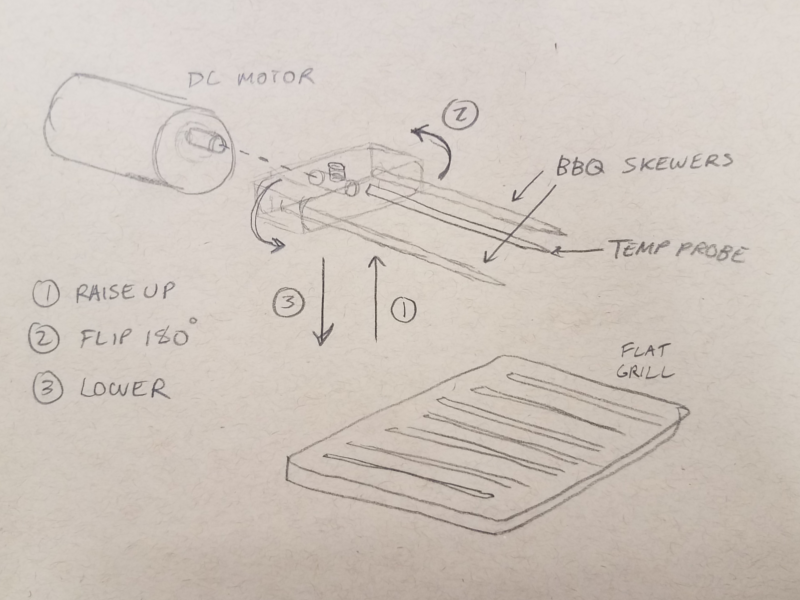 DC MOTOR
②
BBQ SKEWERS
TEMP PROBE
① RAISE UP
② FLIP 180°
③ LOWER
③
①
FLAT
GRILL